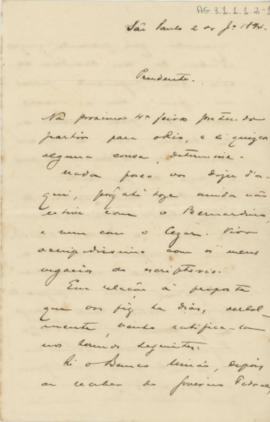 AG.3.1.1.1.2-1
São Paulo 2 de Jº 1894.
Prudente.
Na proxima 4ª feira pretendo
partir para o Rio, e si quizer
alguma cousa, determine.
Nada posso vos dizer d'a-
qui, pois até hoje ainda não
estive com o Bernardino
e nem com o Cezar. Vivo
occupadissimo com os meus
negocios do escriptorio.
Em relação á proposta
que vos fiz ha dias, verbal-
mente, venho ratifica-la
nos termos seguintes:
Si o Banco União, depois
de receber do Governo Federal